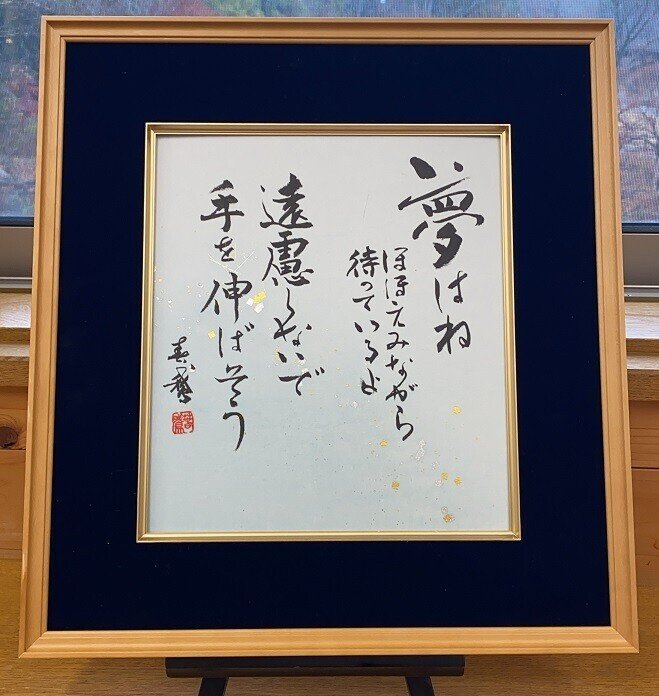 夢はね
ほほえみながら
待っているよ
遠慮しないで
手を伸ばそう